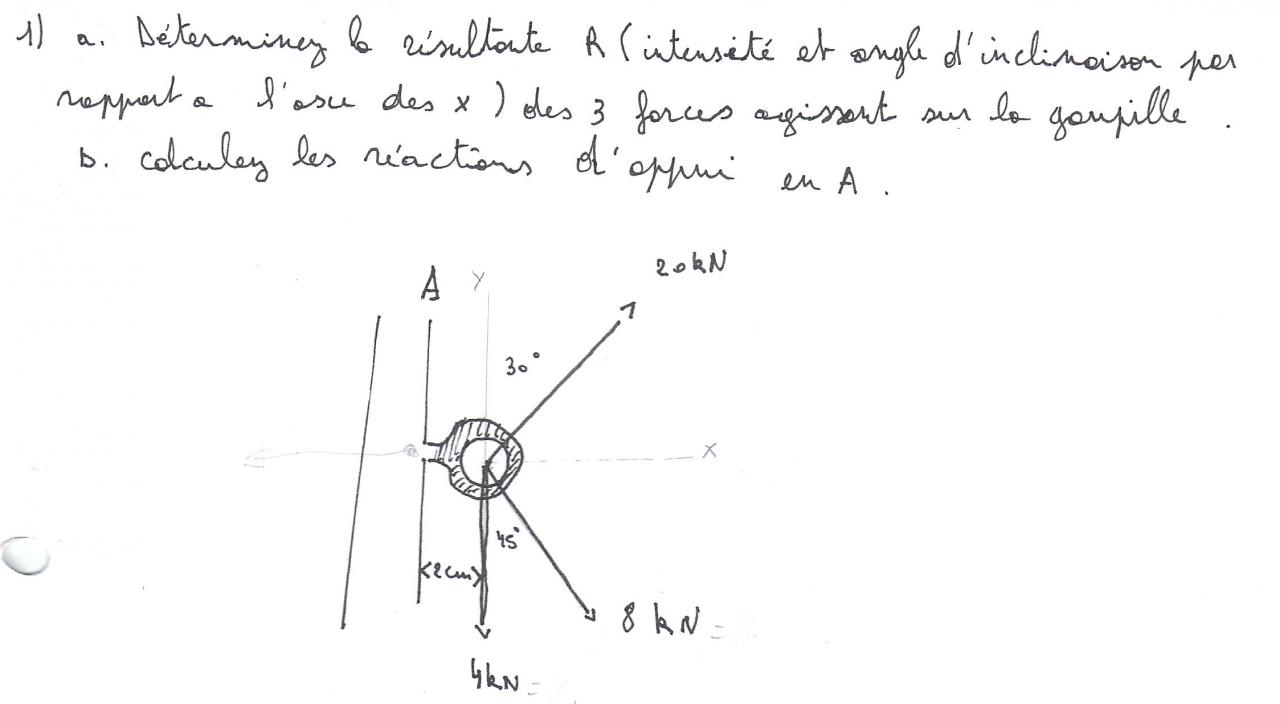 1) a. Déterminez la résultante R (intensité et angle d'inclinaison par
rapport a l'axe des x) des 3 forces agissant sur la goupille.
b. calculez les réactions d'appui en A.
A
y
20kN
30°
x
45°
2cm
8 kN
4kN